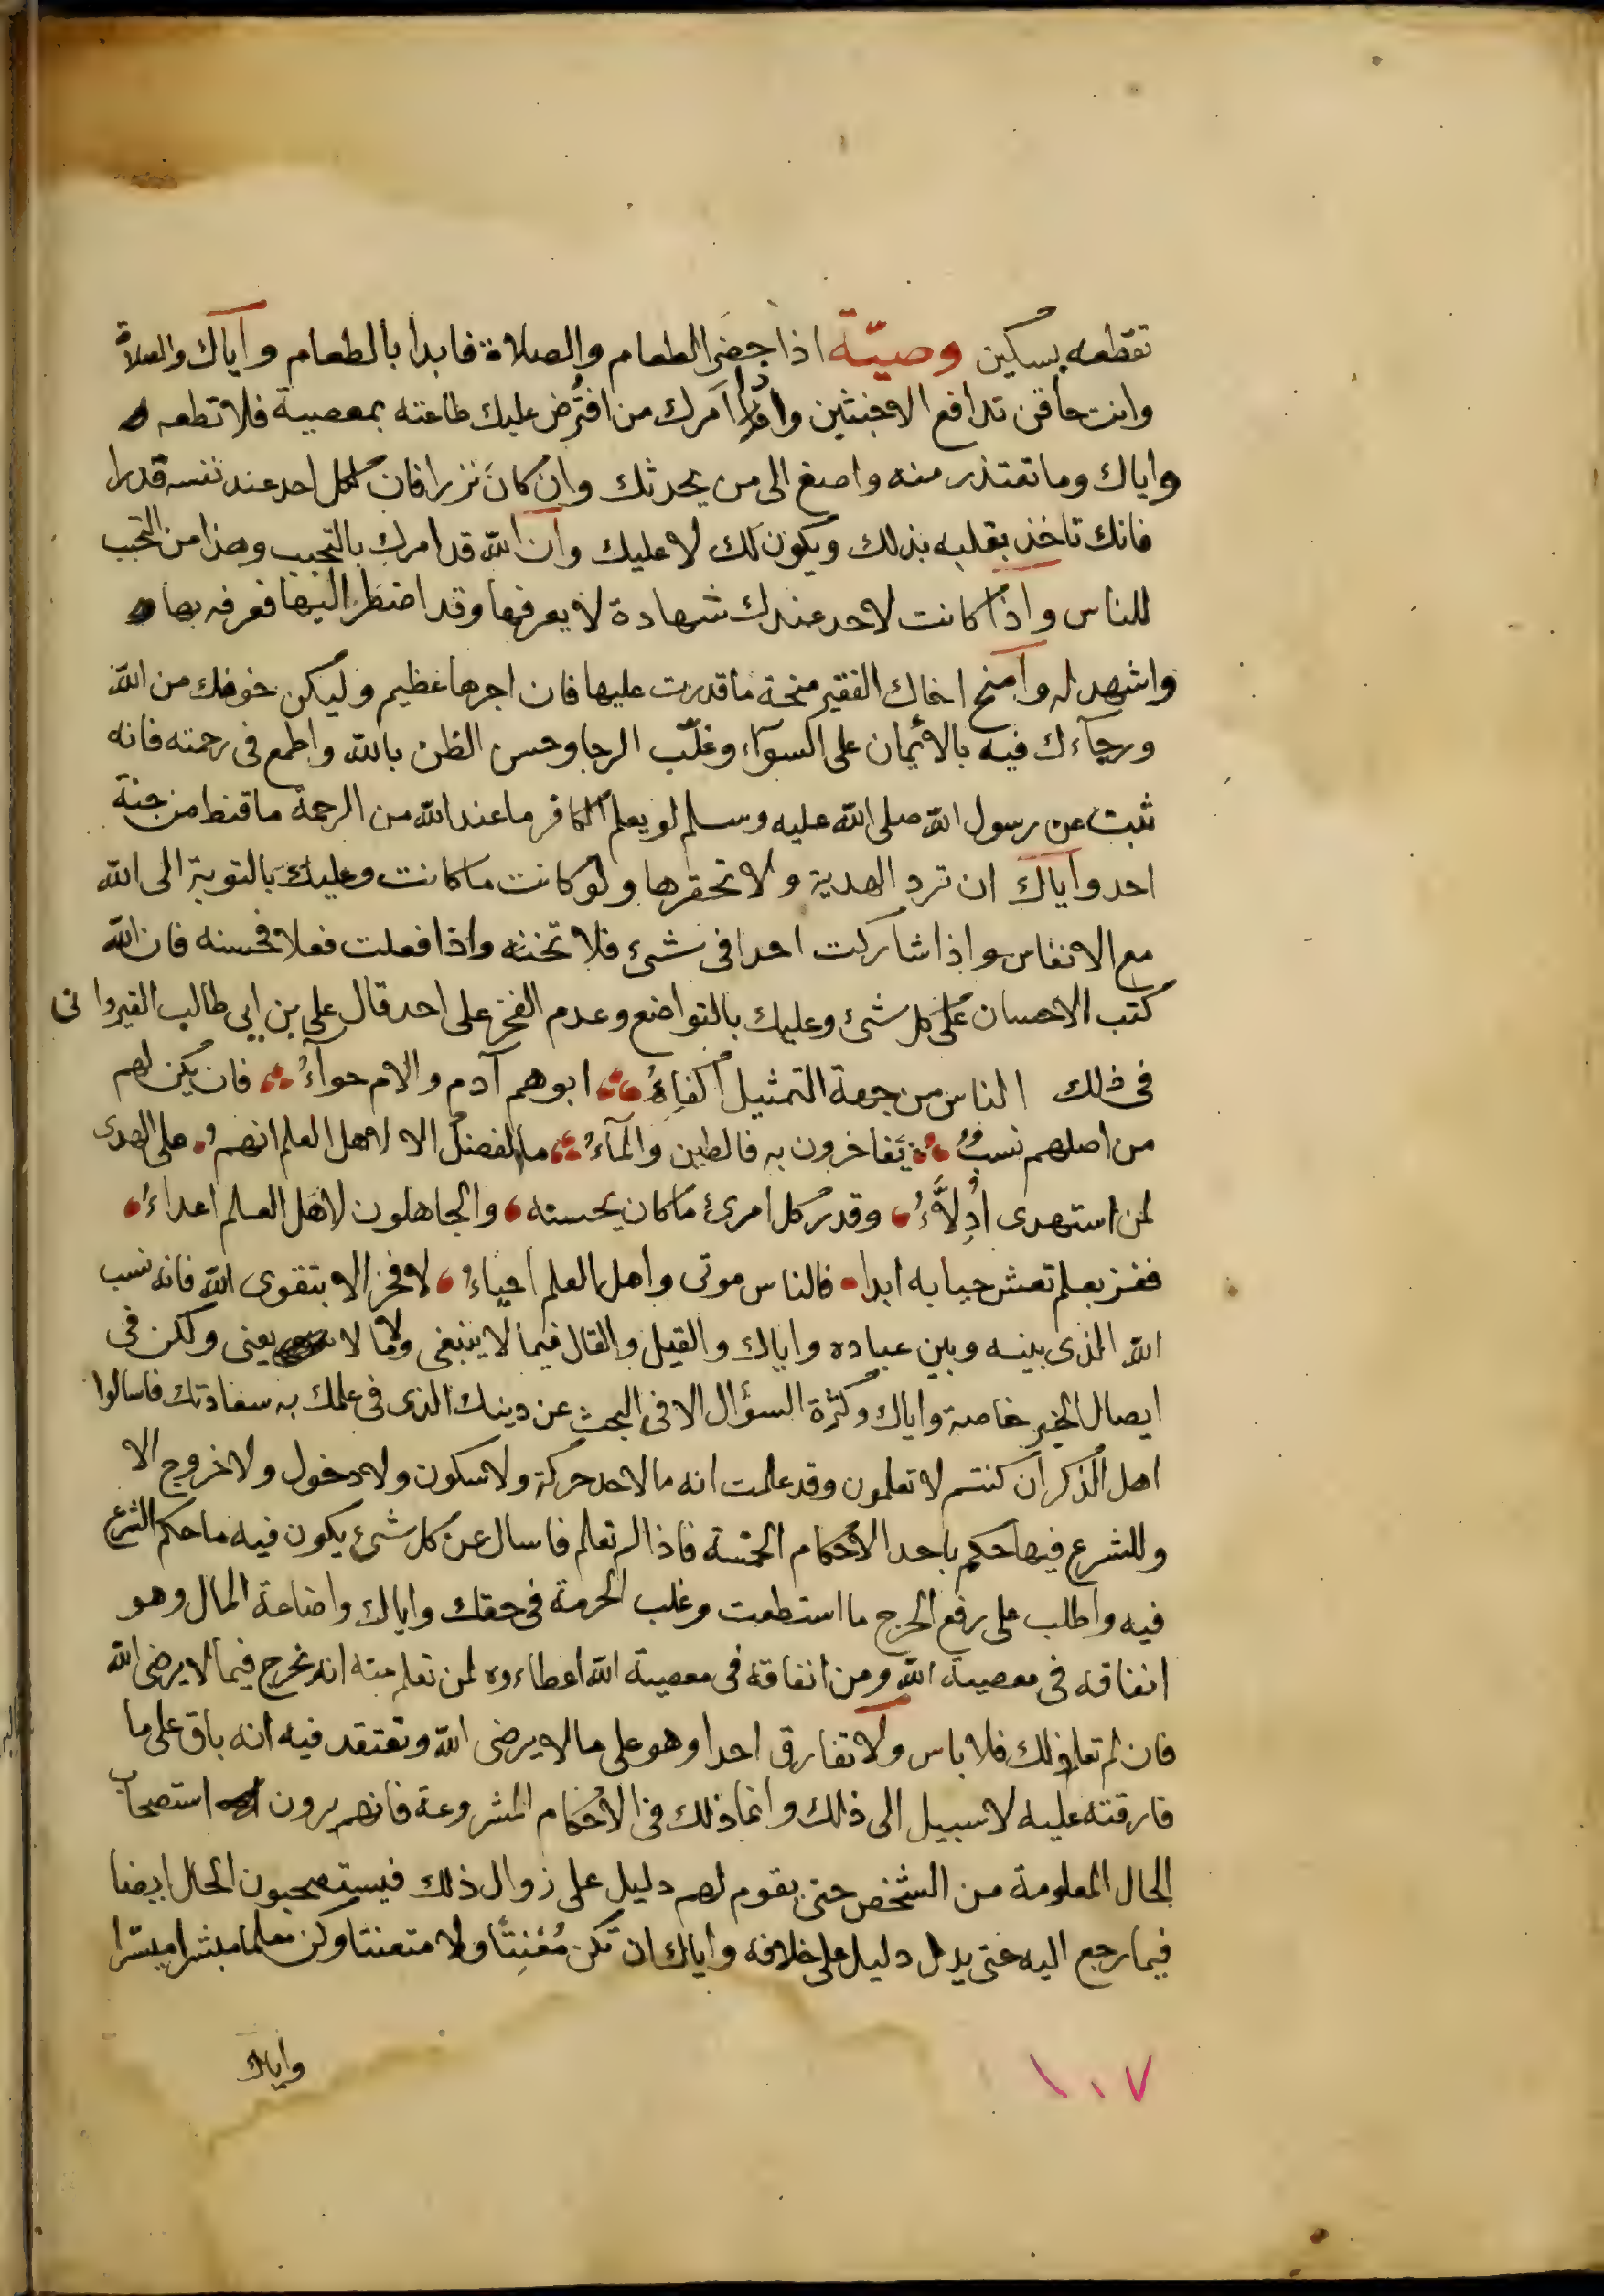 تقطعه بسكين وصيّة اذا حضر الطعام والصلاة فابدا بالطعام واياك والصلاة
وانت حاقن تدافع الاخبثين واذا امرك من افتُرض عليك طاعته بمعصية فلا تطعه
واياك وما تعتذر منه واصغ الى من يحدثك وان كان نزرا فان لكل احد عند نفسه قدرا
فانك تاخذ بقلبه بذلك ويكون لك لا عليك وان الله قد امرك بالتحبب وهذا من التحبب
للناس واذا كانت لاحد عندك شهادة لا يعرفها وقد اضطر اليها فعرفه بها
واشهد له وامنح اخاك الفقير منحة ما قدرت عليها فان اجرها عظيم وليكن خوفك من الله
ورجآءك فيه بالايمان على السوآء وغلّب الرجا وحسن الظن بالله واطمع فى رحمته فانه
ثبت عن رسول الله صلى الله عليه وسلم لو يعلم الكافر ما عند الله من الرحمة ما قنط من جنة
احد واياك ان ترد الهدية ولا تحقرها ولو كانت ما كانت وعليك بالتوبة الى الله
مع الانفاس واذا شاركت احدا فى شئ فلا تخنه واذا فعلت فعلا فحسنه فان الله
كتب الاحسان على كل شئ وعليك بالتواضع وعدم الفخر على احد قال على بن ابى طالب القيروانى
فى ذلك الناس من جهة التمثيل اكفاءُ ابوهم آدم والام حوآءُ فان يكن لهم
من اصلهم نسبٌ يتفاخرون به فالطين والمآءُ ما الفضل الا لاهل العلم انهم على الهدى
لمن استهدى ادِلاَّءُ وقدر كل امرئ ما كان يحسنه والجاهلون لاهل العلم اعداءُ
ففز بعلم تعش حيا به ابدا فالناس موتى واهل العلم احياءُ لا فخر الا بتقوى الله فانه نسب
الله الذى بينه وبين عباده واياك والقيل والقال فيما لا ينبغى ولا ما لا يعنى ولكن فى
ايصال الخير خاصة واياك وكثرة السؤال الا فى البحث عن دينك الذى فى علمك به سعادتك فاسالوا
اهل الذكر ان كنتم لا تعلمون وقد علمت انه ما لاحد حركة ولا سكون ولا دخول ولا خروج الا
وللشرع فيها حكم باحد الاحكام الخمسة فاذا لم تعلم فاسال عن كل شئ يكون فيه ما حكم الشرع
فيه واطلب على رفع الحرج ما استطعت وغلب الحرمة فى حقك واياك واضاعة المال وهو
انفاقه فى معصية الله ومن انفاقه فى معصية الله اعطاءوه لمن تعلم منه انه يخرج فيما لا يرضى الله
فان لم تعلم ذلك فلا باس ولا تفارق احدا وهو على ما لا يرضى الله وتعتقد فيه انه باق على ما
فارقته عليه لا سبيل الى ذلك وانما ذلك فى الاحكام المشروعة فانهم يرون استصحاب
الحال المعلومة من الشخص حتى يقوم لهم دليل على زوال ذلك فيستصحبون الحال ايضا
فيما رجع اليه حتى يدل دليل على خلافه واياك ان تكن مُعْنِتًا ولا متعنتا وكن معلما مبشرا ميسّرا
واياك
١٠٧